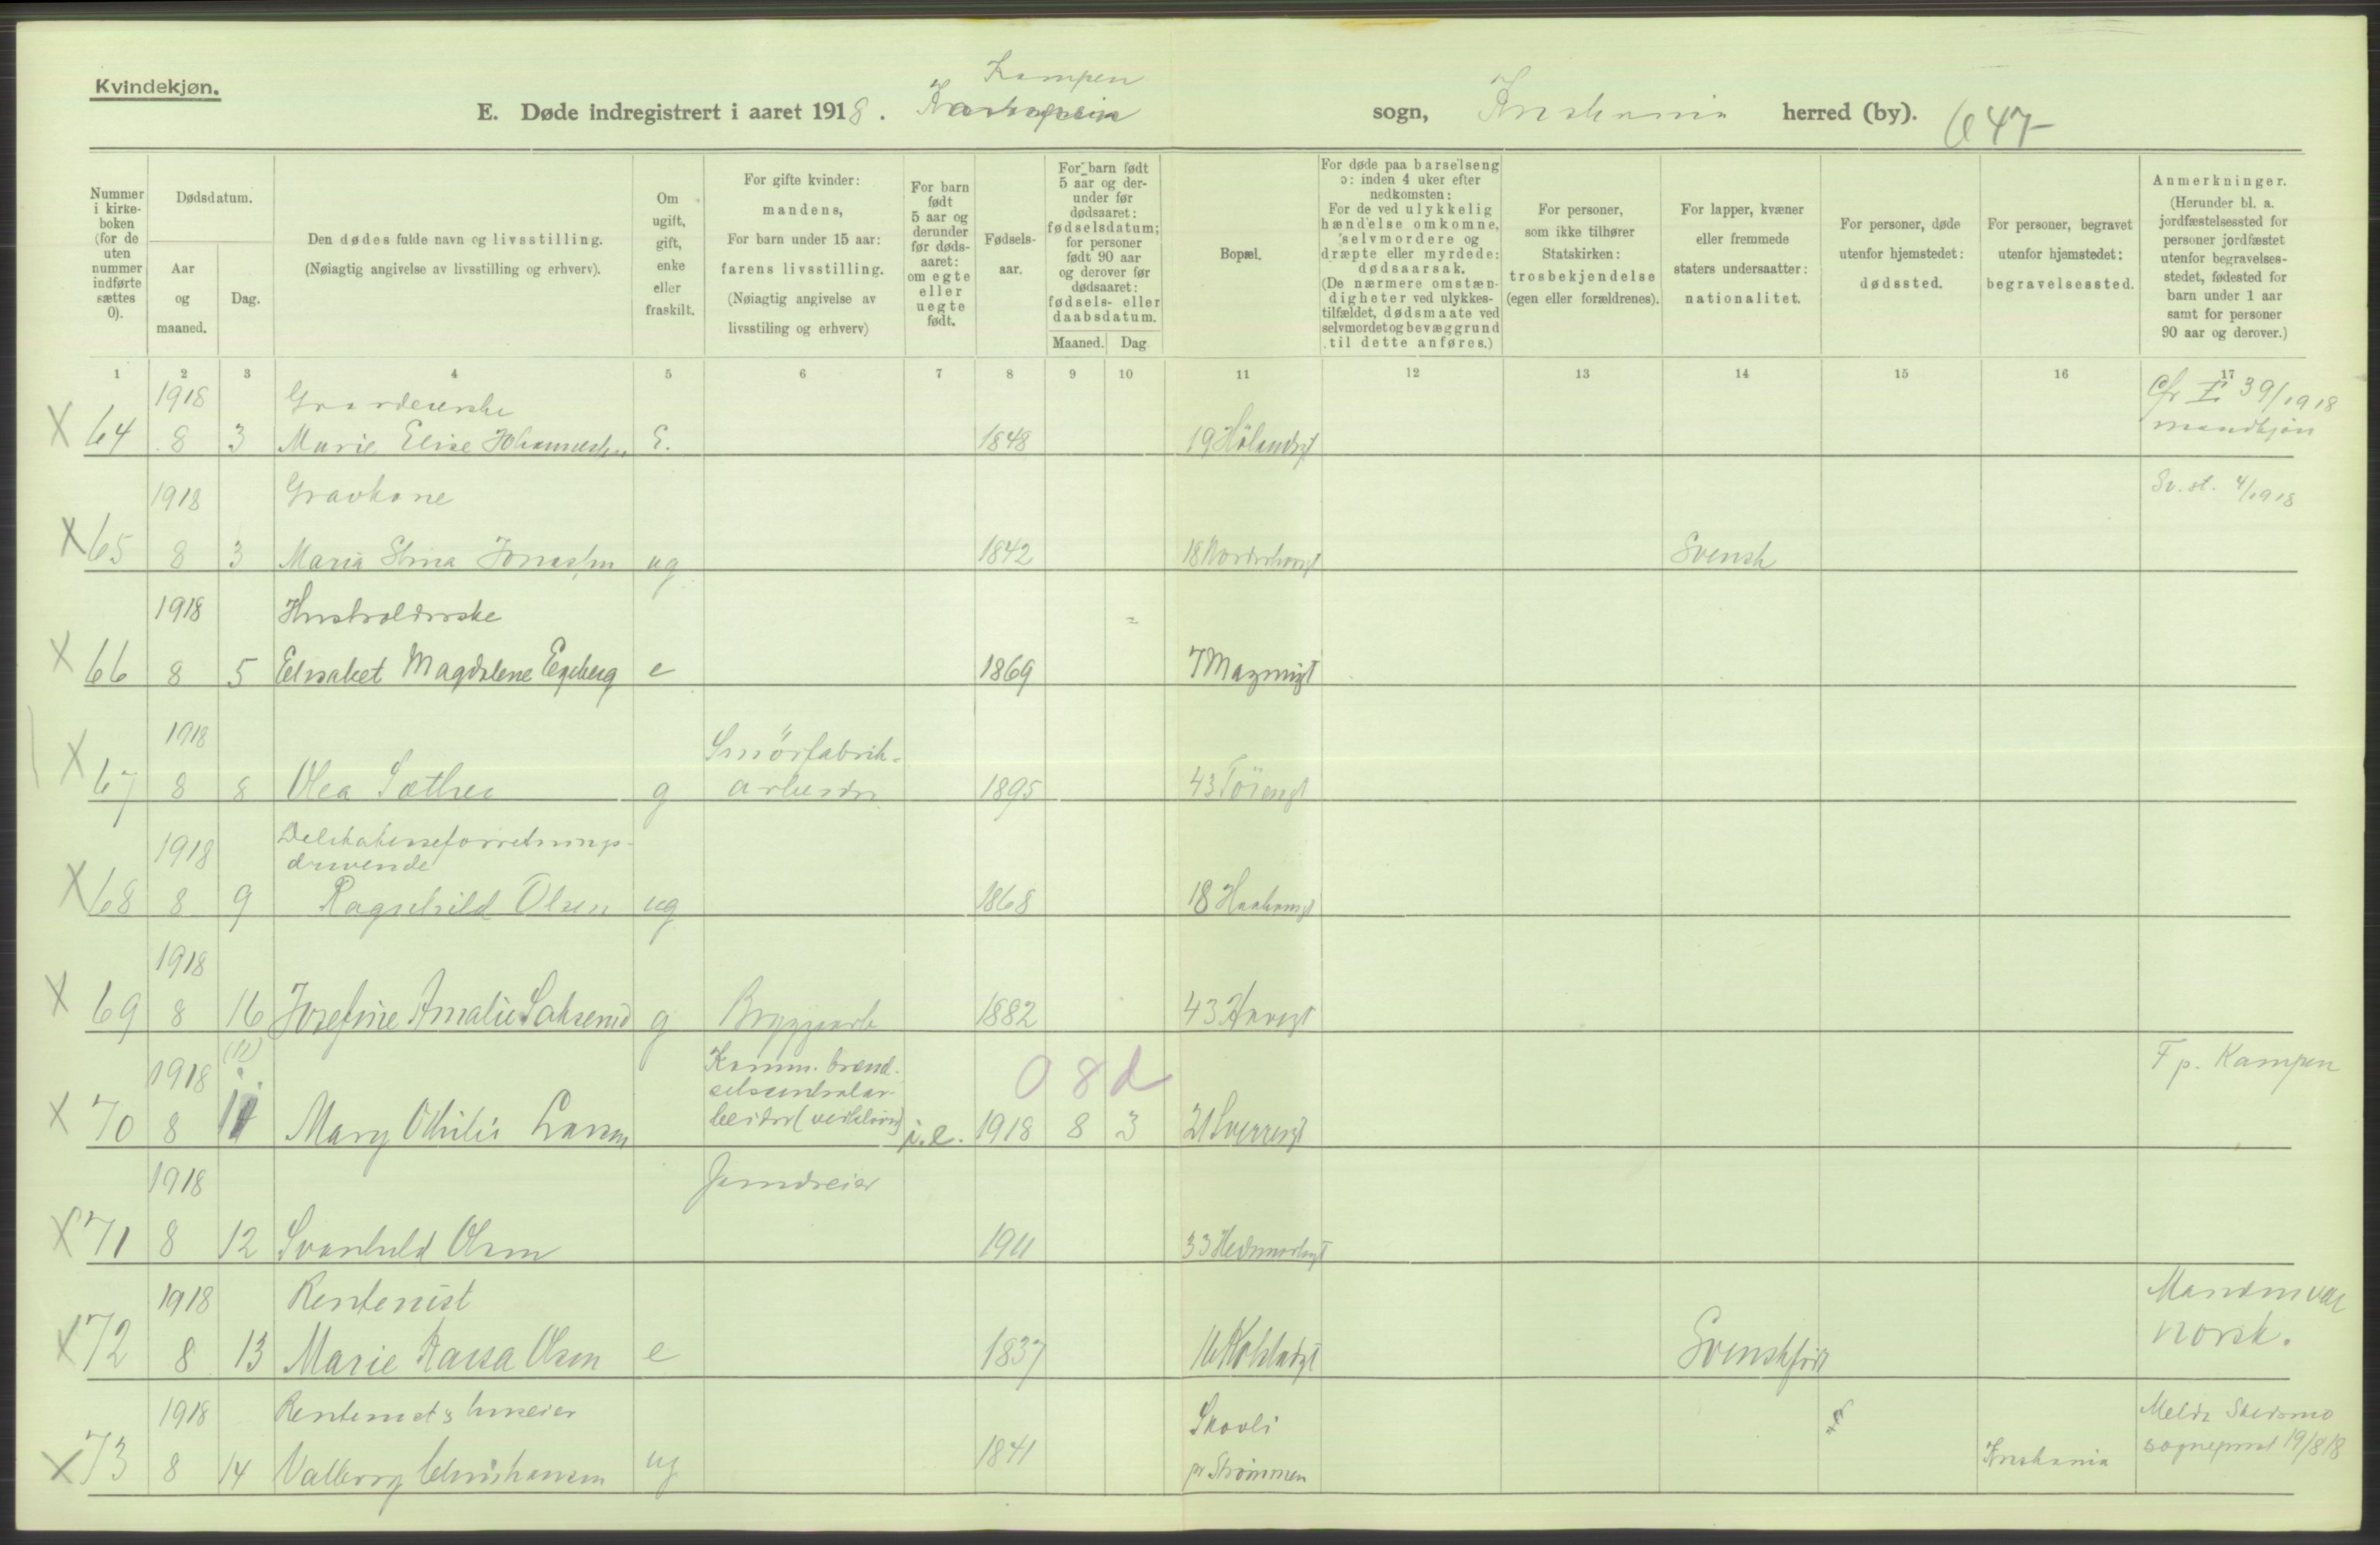 Kvindekjøn.
Kampen
E. Døde indregistrert i aaret 1918. sogn, Kristiania herred (by). 647
Nummer i kirkeboken (for de uten nummer indførte sættes 0).
Dødsdatum.
Aar og maaned.
Dag.
Den dødes fulde navn og livsstilling.
(Nøiagtig angivelse av livsstilling og erhverv).
Om ugift, gift, enke eller fraskilt.
For gifte kvinder: mandens,
For barn under 15 aar: farens livsstilling.
(Nøiagtig angivelse av livsstiling og erhverv)
For barn født 5 aar og derunder før dødsaaret: om egte eller uegte født.
Fødselsaar.
For barn født 5 aar og derunder før dødsaaret: fødselsdatum; for personer født 90 aar og derover før dødsaaret: fødsels- eller daabsdatum.
Maaned. Dag
Bopæl.
For døde paa barselseng ɔ: inden 4 uker efter nedkomsten:
For de ved ulykkelig hændelse omkomne, selvmordere og dræpte eller myrdede: dødsaarsak.
(De nærmere omstændigheter ved ulykkestilfældet, dødsmaate ved selvmordet og bevæggrund til dette anføres.)
For personer, som ikke tilhører Statskirken: trosbekjendelse (egen eller forældrenes).
For lapper, kvæner eller fremmede staters undersaatter: nationalitet.
For personer, døde utenfor hjemstedet: dødssted.
For personer, begravet utenfor hjemstedet: begravelsessted.
Anmerkninger.
(Herunder bl. a. jordfæstelsessted for personer jordfæstet utenfor begravelsesstedet, fødested for barn under 1 aar samt for personer 90 aar og derover.)
1 2 3 4 5 6 7 8 9 10 11 12 13 14 15 16 17
1918 Cfr I 39/1918
X 64 8 3 Marie Elise Johannessen E. 1848 19 Hölandsgt mandkjøn
1918 Gravkone Sv. st. 4/1918
X 65 8 3 Maria Stina Jonassen ug 1842 18 Svensk
1918 Husholderske
X 66 8 5 Elisabet Magdalene Egeberg e 1869 7 Magnusgt
1918 Smörfabrik-
X 67 8 8 Olea Sæther g arbeider 1895 43 Töiengt
1918 Delikatesseforretnings-
drivende
X 68 8 9 Ragnhild Olsen ug 1868 18 Haakonsgt
1918
X 69 8 16 Josefine Amalie g Bryggearb 1882 43
1918 (11) Komm. brend- 0 8 d F p. Kampen
selscentralar-
X 70 8 11 Mary Othilie Larsen beider i.e. 1918 8 3 21 Sverresgt
1918
X 71 8 12 Svanhild Olsen 1911 33 Hedmarksgt
1918 Rentenist Manden var
X 72 8 13 Marie Kaisa Olsen e 1837 16 Svenskfødt norsk.
1918 Rentenist & huseier Skovli Meldt Skedsmo
X 73 8 14 Valborg Christiansen ug 1841 pr Strømmen Kristiania sogneprest 19/8 18